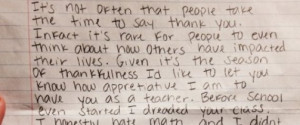 It's not often that people take
the time to say thank you.
Infact it's rare for people to even
think about how others have impacted
their lives. Given it's the season
Of thankfulness I'd like to let you
know how appretiative I am to
have you as a teacher. Before School
even started I dreaded your class.
I honestly hate math and I didnt